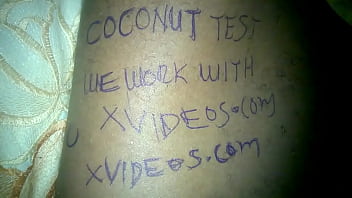 COCONUT TEST
WE WORK WITH
U XVIDEOS.COM
XVIDEOS.COM